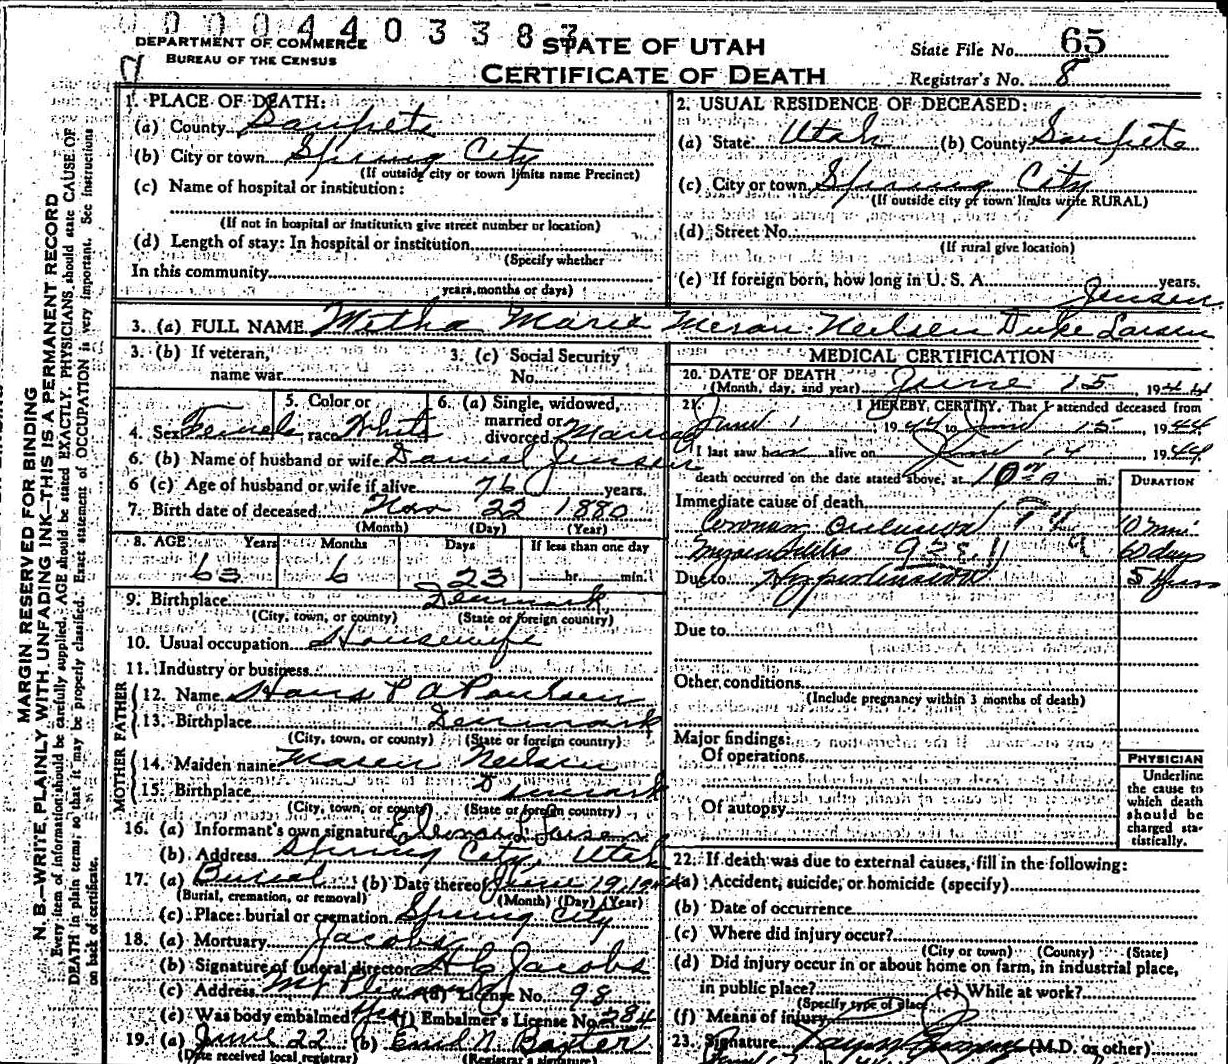 00004403383
DEPARTMENT OF COMMERCE
BUREAU OF THE CENSUS
STATE OF UTAH
CERTIFICATE OF DEATH
State File No. 65
Registrar's No. 8
MARGIN RESERVED FOR BINDING
N. B.—WRITE PLAINLY WITH UNFADING INK—THIS IS A PERMANENT RECORD
Every item of information should be carefully supplied. AGE should be stated EXACTLY. PHYSICIANS should state CAUSE OF
DEATH in plain terms, so that it may be properly classified. Exact statement of OCCUPATION is very important. See instructions
on back of certificate.
1. PLACE OF DEATH:
(a) County Sanpete
(b) City or town Spring City
(If outside city or town limits name Precinct)
(c) Name of hospital or institution:
(If not in hospital or institution give street number or location)
(d) Length of stay: In hospital or institution
(Specify whether
In this community
years, months or days)
2. USUAL RESIDENCE OF DECEASED:
(a) State Utah (b) County Sanpete
(c) City or town Spring City
(If outside city or town limits write RURAL)
(d) Street No.
(If rural give location)
(e) If foreign born, how long in U. S. A. years.
Jensen
3. (a) FULL NAME Metha Marie Neilsen Duke Larsen
3. (b) If veteran,
name war
3. (c) Social Security
No.
4. Sex Female
5. Color or
race White
6. (a) Single, widowed,
married or
divorced Married
6. (b) Name of husband or wife Daniel Jensen
6 (c) Age of husband or wife if alive 76 years.
7. Birth date of deceased Nov 22 1880
(Month) (Day) (Year)
8. AGE Years Months Days If less than one day
63 6 23 hr. min.
9. Birthplace Denmark
(City, town, or county) (State or foreign country)
10. Usual occupation Housewife
11. Industry or business
FATHER
12. Name Hans P A Poulsen
13. Birthplace Denmark
(City, town, or county) (State or foreign country)
MOTHER
14. Maiden name Maren Neilsen
15. Birthplace Denmark
(City, town, or county) (State or foreign country)
16. (a) Informant's own signature Larsen
(b) Address Spring City, Utah
17. (a) Burial (b) Date thereof June 19, 1944
(Burial, cremation, or removal) (Month) (Day) (Year)
(c) Place: burial or cremation Spring City
18. (a) Mortuary Jacobs
(b) Signature of funeral director H C Jacobs
(c) Address Mt Pleasant (d) License No. 98
(e) Was body embalmed? Yes (f) Embalmer's License No. 284
19. (a) June 22 (b) Baxter
(Date received local registrar) (Registrar's signature)
MEDICAL CERTIFICATION
20. DATE OF DEATH
(Month, day, and year) June 15, 1944
21. I HEREBY CERTIFY, That I attended deceased from
June 1 1944 to June 15, 1944
I last saw her alive on June 14 1944
death occurred on the date stated above, at 10 m.
DURATION
Immediate cause of death
Coronary occlusion 10 min
Myocarditis 60 days
Due to Hypertension 5 years
Due to
Other conditions
(Include pregnancy within 3 months of death)
Major findings:
Of operations
Of autopsy
PHYSICIAN
Underline
the cause to
which death
should be
charged sta-
tistically.
22. If death was due to external causes, fill in the following:
(a) Accident, suicide, or homicide (specify)
(b) Date of occurrence
(c) Where did injury occur?
(City or town) (County) (State)
(d) Did injury occur in or about home on farm, in industrial place,
in public place? (e) While at work?
(Specify type of place)
(f) Means of injury
23. Signature (M.D. or other)